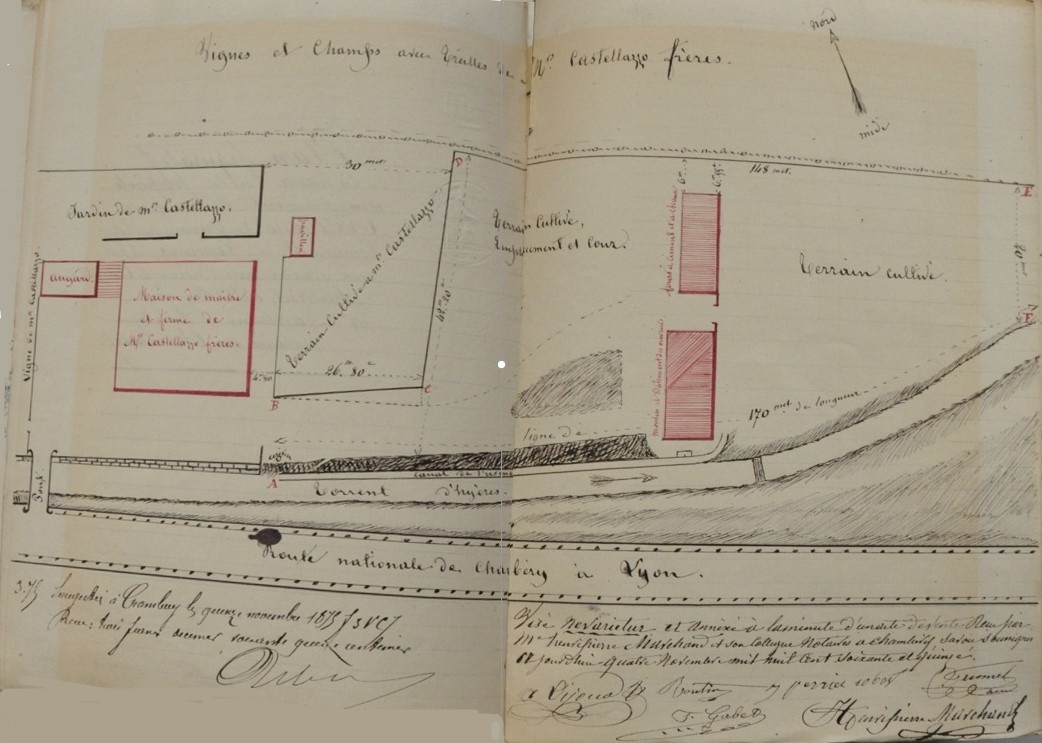 Vignes et Champs avec Treilles de Mrs Castellazzo frères.
nord
midi
30 met.
D
148 met.
E
Jardin de mr Castellazzo.
Terrain Cultivé,
Emplacement et Cour.
Terrain cultivé.
Pavillon
angard.
Maison de maître
et ferme de
Mrs Castellazzo frères.
Vigne de mr Castellazzo
Terrain Cultivé à mr Castellazzo
26m 80c
B
C
F
170 met de longueur
ligne de
A
canal de l'usine
Torrent d'hyères.
Pont
Route nationale de Chambéry à Lyon.
3.75
Enregistré à Chambéry le quinze novembre 1875
Reçu: trois francs soixante quinze centimes
Visé nevarietur et annexé à la minute d'un acte de vente Reçu par
Me Henripierre Marchand et son collègue Notaires à Chambéry Savoie soussignés
aujourdhui quatre Novembre mil huit Cent soixante et Quinze.
F. Gabet
Henripierre Marchand